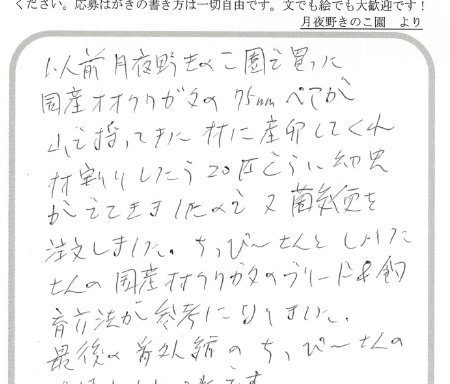 ください。応募はがきの書き方は一切自由です。文でも絵でも大歓迎です！
月夜野きのこ園　より
以前月夜野きのこ園で買った
国産オオクワガタの75mmペアが
山で採ってきた材に産卵してくれ
材割りしたら20匹ぐらい幼虫
がでてきましたので又菌糸便を
注文しました。ちっぴ〜さんと
さんの国産オオクワガタのブリード&飼
育方法が参考になりました。
最後の番外編のちっぴ〜さんの